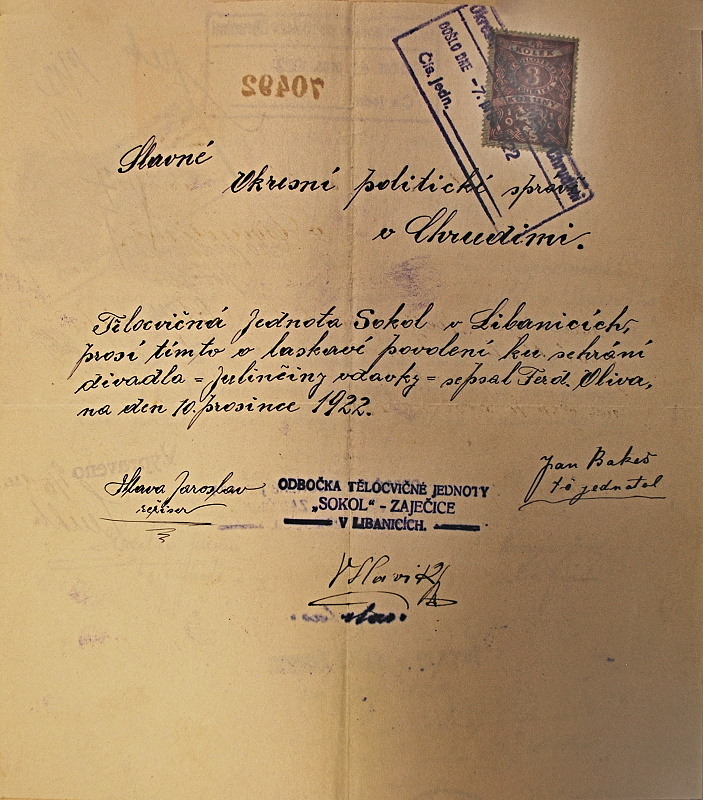 Okres
DOŠLO DNE -7.
22
Čís. jedn.
Chrudimi
KOLEK
3
KORUNY
70492
Slavné
Okresní politické správě
v Chrudimi.
Tělocvičná Jednota Sokol v Libanicích,
prosí tímto o laskavé povolení ku sehrání
divadla = Julinčiny vdavky = sepsal Ferd. Oliva,
na den 10. prosince 1922.
Slava Jaroslav
režisér
ODBOČKA TĚLOCVIČNÉ JEDNOTY
„SOKOL“ - ZAJEČICE
V LIBANICÍCH.
Jan Bakeš
jednatel
VSlavík
Vypraveno